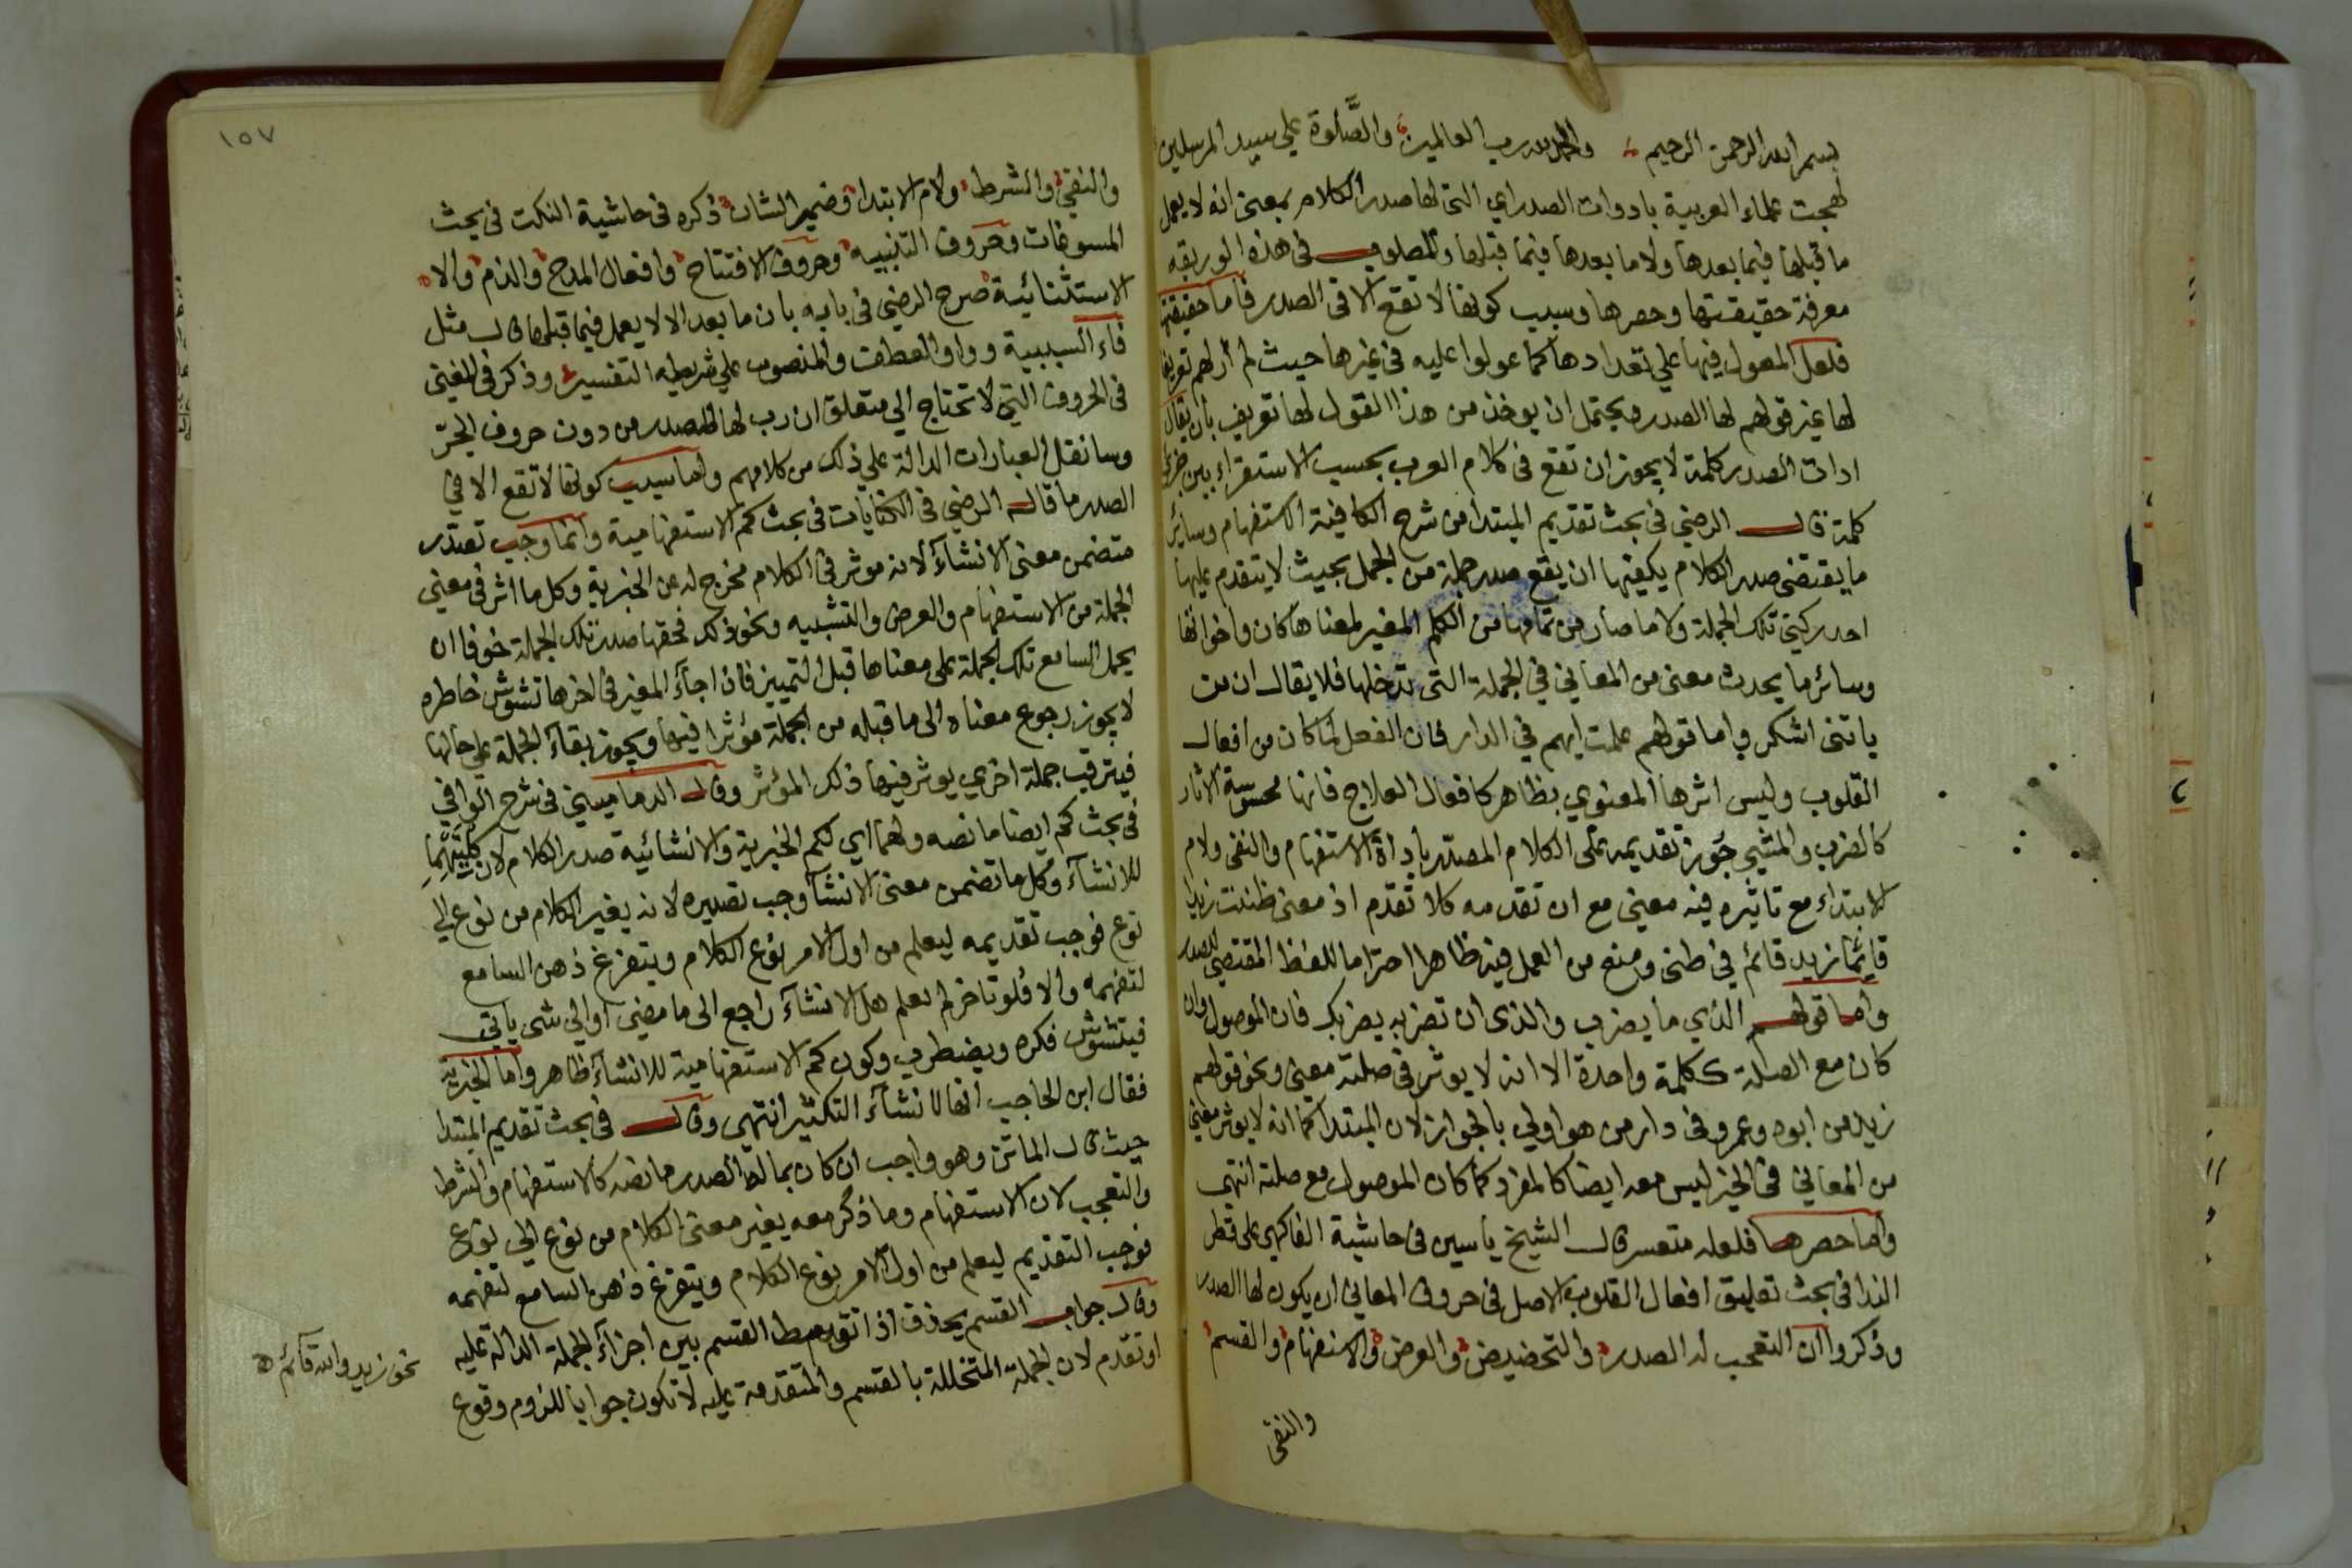 بسم الله الرحمن الرحيم والحمد لله رب العالمين والصَّلوة علي سيد المرسلين
لهجت علماء العربية بادوات الصدر اي التي لها صدر الكلام بمعنى انه لا يعمل
ما قبلها فيما بعدها ولا ما بعدها فيما قبلها والمطلوب في هذه الوريقه
معرفة حقيقتها وحصرها وسبب كونها لا تقع الا في الصدر فاما حقيقتها
فلعل المعول فيها علي تعدادها كما عولوا عليه في غيرها حيث لم أر لهم تعريفا
لها غير قولهم لها الصدر ويحتمل ان يوخذ من هذا القول لها تعريف بأن يقال
ادات الصدر كلمة لا يجوز ان تقع في كلام العرب بحسب الاستقراء بين جزئي
كلمة قال الرضي في بحث تقديم المبتدا من شرح الكافية الاستفهام وسائر
ما يقتضى صدر الكلام يكفيها ان يقع صدر جملة من الجمل بحيث لا يتقدم عليها
احد ركني تلك الجملة ولا ما صار من تمامها من الكلم المغير لمعناها كان واخواتها
وسائر ما يحدث معنى من المعاني في الجملة التى تدخلها فلا يقال ان من
ياتنى اشكر واما قولهم علمت ايهم في الدار فان الفعل لما كان من افعال
القلوب وليس اثرها المعنوي بظاهر كافعال العلاج فانها محسوسة الآثار
كالضرب والمشي جوز تقديمه على الكلام المصدر بأداة الاستفهام والنفى ولام
الابتداء مع تاثيره فيه معنى مع ان تقدمه كلا تقدم اذ معنى ظننت زيدا
قايمًا زيد قائم في ظنى ومنع من العمل فيه ظاهرا احتراما للفظ المقتضي للصدر
واما قولهم الذي ما يضرب والذى ان تضربه يضربك فان الموصول وان
كان مع الصلة ككلمة واحدة الا انه لا يوثر في صلته معنى ونحو قولهم
زيد من ابوه وعمرو في دار من هو اولي بالجواز لان المبتدا كما انه لا يوثر معنى
من المعاني في الخبر ليس معه ايضا كالمفرد كما كان الموصول مع صلته انتهى
واما حصرها فلعله متعسر قال الشيخ ياسين في حاشية الفاكهي على قطر
الندا في بحث تعليق افعال القلوب الاصل في حروف المعاني ان يكون لها الصدر
وذكروا ان التعجب له الصدر والتحضيض والعرض والاستفهام والقسم
والنفى
١٥٧
والنفي والشرط ولام الابتدا وضمير الشان ذكره في حاشية النكت في بحث
المسوغات وحروف التنبيه وحروف الافتتاح وافعال المدح والذم والا
الاستثنائية صرح الرضي في بابه بان ما بعد الا لا يعمل فيما قبلها قال مثل
فاء السببية وواو العطف والمنصوب علي شريطة التفسير وذكر في المغني
في الحروف التي لا تحتاج الي متعلق ان رب لها الصدر من دون حروف الجرّ
وسانقل العبارات الدالة علي ذلك من كلامهم واما سبب كونها لا تقع الا في
الصدر ما قاله الرضي في الكنايات في بحث كم الاستفهامية وانما وجب تصدر
متضمن معنى الانشآء لانه موثر في الكلام مخرج له عن الخبرية وكل ما اثر في معني
الجملة من الاستفهام والعرض والتشبيه ونحو ذلك فحقها صدر تلك الجملة خوفا ان
يحمل السامع تلك الجملة على معناها قبل التمييز فان اجآء المغير في اخرها تشوش خاطره
لا يجوز رجوع معناه الى ما قبله من الجملة مؤثرا فيها ويجوز بقآء الجملة علي حالها
فيترقب جملة اخري يوثر فيها ذلك المؤثر وقال الدماميني في شرح الوافي
في بحث كم ايضا ما نصه ولهما اي لكم الخبرية والانشائية صدر الكلام لان كليتهما
للانشآء وكل ما تضمن معنى الانشآ وجب تصديره لانه يغير الكلام من نوع الي
نوع فوجب تقديمه ليعلم من اول الامر نوع الكلام ويتفرغ ذهن السامع
لتفهمه والا فلو تاخر لم يعلم هل الانشآء راجع الى ما مضى او الي شى ياتي
فيتشوش فكره ويضطرب وكون كم الاستفهامية للانشآء ظاهر واما الخبرية
فقال ابن الحاجب انها لانشآء التكثير انتهى وقال في بحث تقديم المبتدا
حيث قال الماتن وهو واجب ان كان بما له الصدر ما نصه كالاستفهام والشرط
والتعجب لان الاستفهام وما ذكر معه يغير معنى الكلام من نوع الي نوع
فوجب التقديم ليعلم من اول الامر نوع الكلام ويتفرغ ذهن السامع لتفهمه
وقال جواب القسم يحذف اذا توسط القسم بين اجزآء الجملة الدالة عليه
او تقدم لان الجملة المتخللة بالقسم والمتقدمة عليه لا تكون جوابا للزوم وقوع
نحو زيد والله قآئم